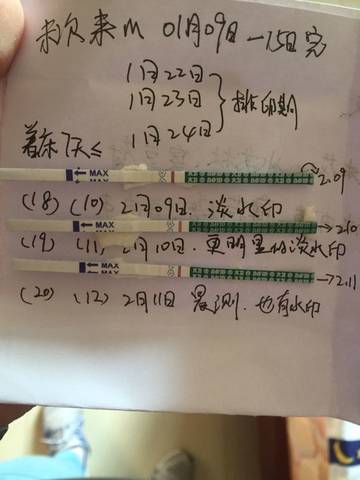 末次来M 01月09日—15日完
1月22日
1月23日 排卵期
1月24日
着床7天≤
MAX
MAX
2.09
(18) (10) 2月09日. 淡水印
MAX
MAX
2.10
(19) (11) 2月10日. 更明显的淡水印
MAX
MAX
2.11
(20) (12) 2月11日 晨测. 也有水印